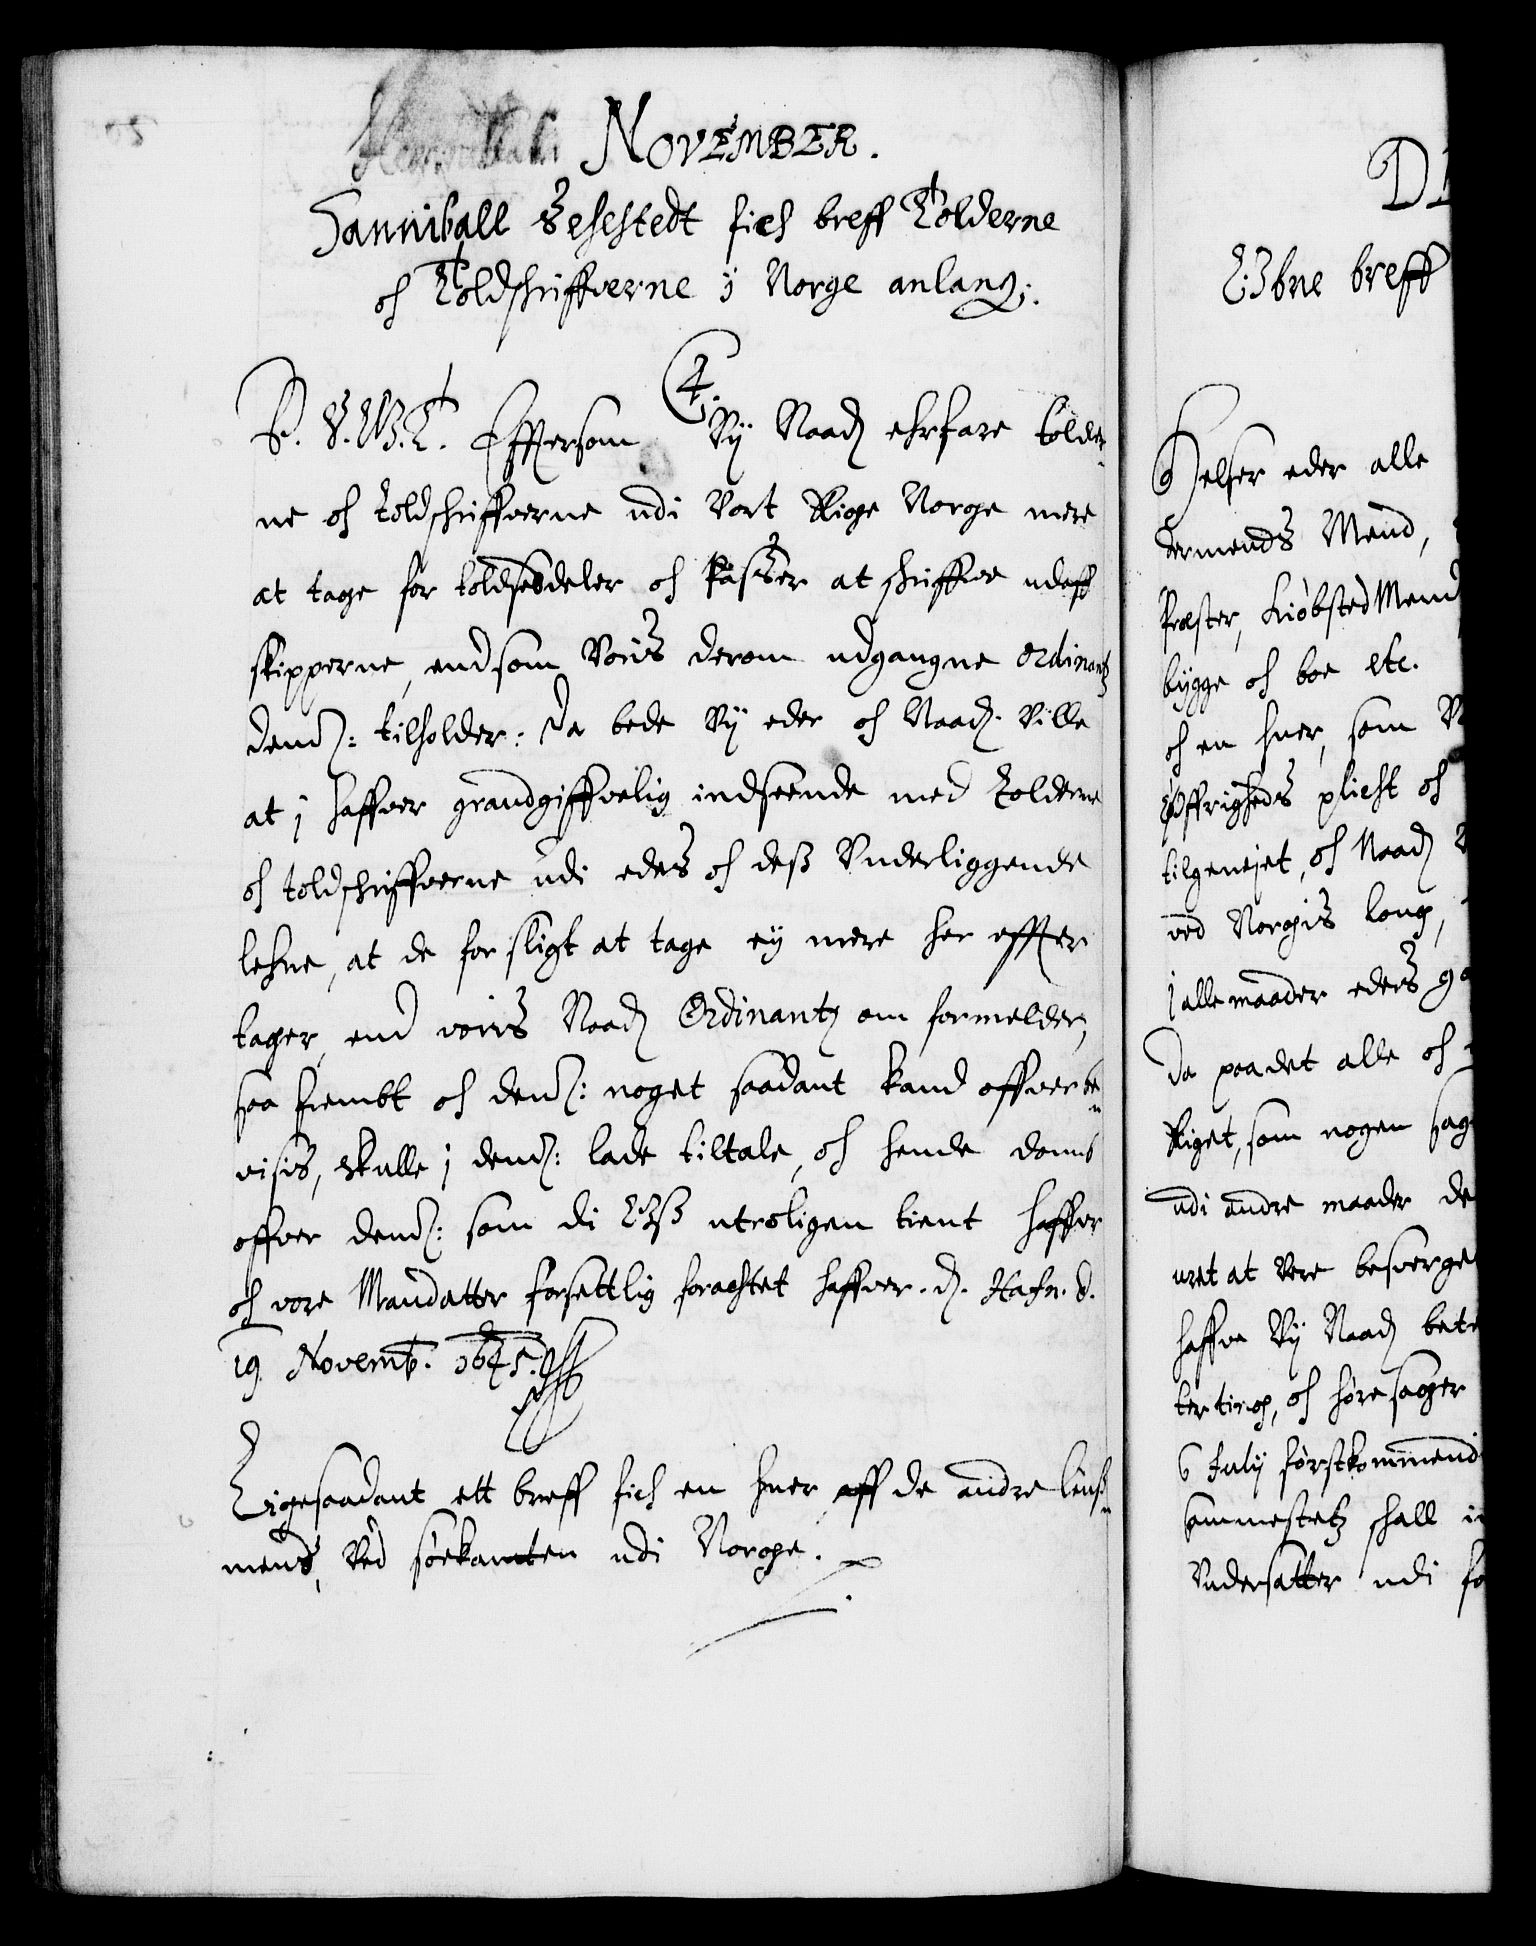 NOVEMBER.
Hanniball Sehestedt fich breff Tolderne
och Toldschriffverne ÿ Norge anlang:
4.
P. V. W. T. Effttersom Vÿ Naad: ehrfare tolder
ne och toldschriffverne udi Vort Rige Norge mere
at tage for toldseddeler och Passer at schriffve udaff
skipperne, end som Voris derom udgangne Ordinantz
dend: tilholder: Da bede Vÿ eder och Naad: Ville
at j haffver grandgiffvelig indseende med tolderne
och toldschriffverne udi eders och dess Vnderliggende
lehne, at de for sligt at tage eÿ mere her effter
tager, end voris Naad: Ordinantz om formelder,
saa frembt och dend: noget saadant kand offverbe
visis, skulle j dend: lade tiltale, och hende domb
offver dend: som di Oss utroligen tient haffver
och vore Mandatter forsettlig forachtet haffver. d. Hafn. d.
19. Novemb. 1645.
Ligesaadant ett breff fich en huer aff de andre lens
mend, Ved söekanten udi Norge.
D
Obne breff
Helser eder alle
dermends Mend,
Præster, Kiöbsted Mend
bÿgge och boe etc.
och en huer, som V
Öffrigheds plicht och
tilgenejet, och Naad: V
ved Norgis loug,
j alle maader eders
Da paa det alle och
Riget, som nogen sag
udi andre maader de
uret at Vere besverge
haffve Vÿ Naad: bete
ter ting, och höre sager
6 Julÿ förstkommend
sammestetz schall i
Vndersatter udi fo